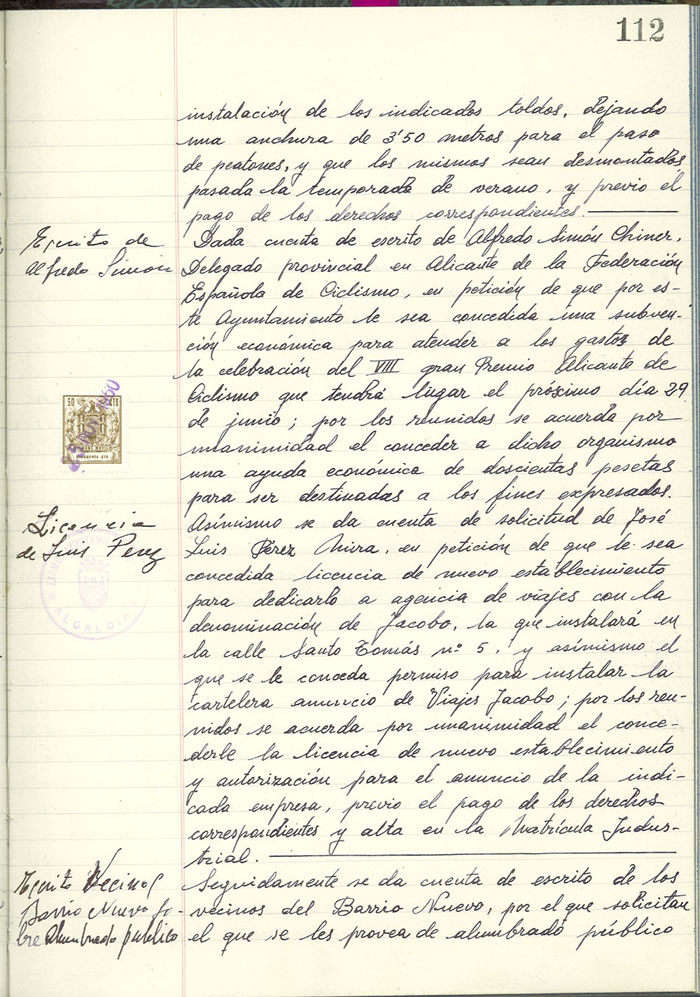 112
instalación de los indicados toldos, dejando
una anchura de 3'50 metros para el paso
de peatones, y que los mismos sean desmontados
pasada la temporada de verano, y previo el
pago de los derechos correspondientes.
Escrito de
Alfredo Simón
Dada cuenta de escrito de Alfredo Simón Chiner,
Delegado provincial en Alicante de la Federación
Española de Ciclismo, en petición de que por es-
te Ayuntamiento le sea concedida una subven-
ción económica para atender a los gastos de
la celebración del VIII gran Premio Alicante de
Ciclismo que tendrá lugar el próximo día 29
de junio; por los reunidos se acuerda por
unanimidad el conceder a dicho organismo
una ayuda económica de doscientas pesetas
para ser destinadas a los fines expresados.
50 CTS
Licencia
de Luis Perez
ALCALDIA
Asímismo se da cuenta de solicitud de José
Luis Pérez, en petición de que le sea
concedida licencia de nuevo establecimiento
para dedicarlo a agencia de viajes con la
denominación de Jacobo, la que instalará en
la calle Santo Tomás nº 5, y asímismo el
que se le conceda permiso para instalar la
cartelera anuncio de Viajes Jacobo; por los reu-
nidos se acuerda por unanimidad el conce-
derle la licencia de nuevo establecimiento
y autorización para el anuncio de la indi-
cada empresa, previo el pago de los derechos
correspondientes y alta en la Matrícula Indus-
trial.
Escrito Vecinos
Barrio Nuevo so-
bre Alumbrado público
Seguidamente se da cuenta de escrito de los
vecinos del Barrio Nuevo, por el que solicitan
el que se les provea de alumbrado público